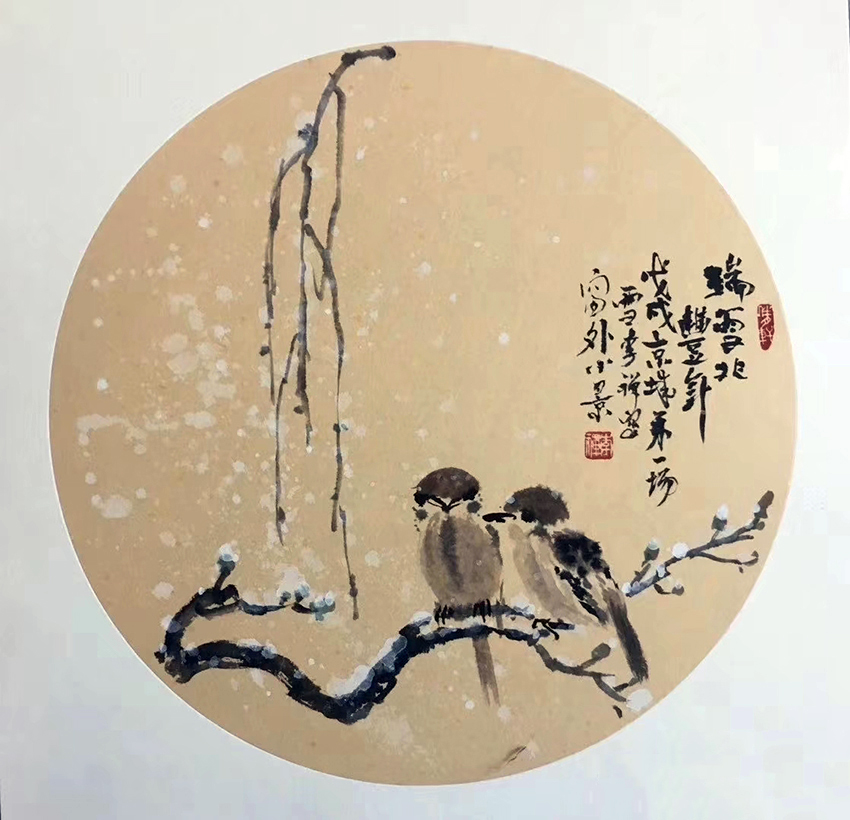 瑞雪兆
豐年
戊戌京城第一场
雪李禅写
窗外小景